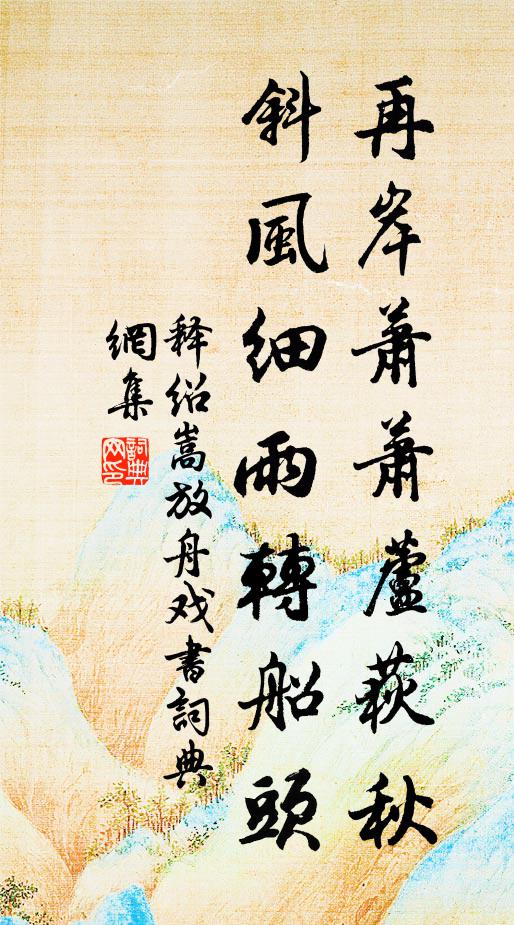 再岸蕭蕭蘆荻秋
斜風细雨轉船頭
释绍嵩放舟戏書詞典
網集
詞典
网印